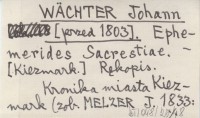 WÄCHTER Johann
[przed 1803]. Ephe-
merides Sacrestiae. -
[Kiezmark.] Rękopis.
Kronika miasta Kiez-
mark (zob. MELZER J. 1833: